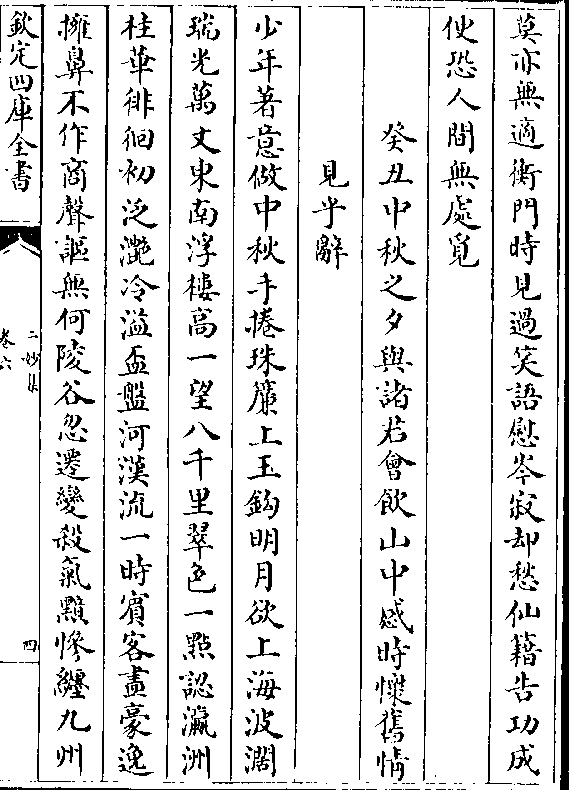 莫亦無適衡門時見過笑語慰岑寂却愁仙籍告功成
使恐人間無處覓
癸丑中秋之夕與諸君會飲山中感時懷舊情
見乎辭
少年著意做中秋手捲珠簾上玉鈎明月欲上海波濶
瑞光萬丈東南浮樓高一望八千里翠色一點認瀛洲
桂華徘徊初泛灔冷溢盃盤河漢流一時賓客盡豪逸
擁鼻不作商聲謳無何陵谷忽遷變殺氣黯慘纏九州
欽定四庫全書
二妙集
卷六
四